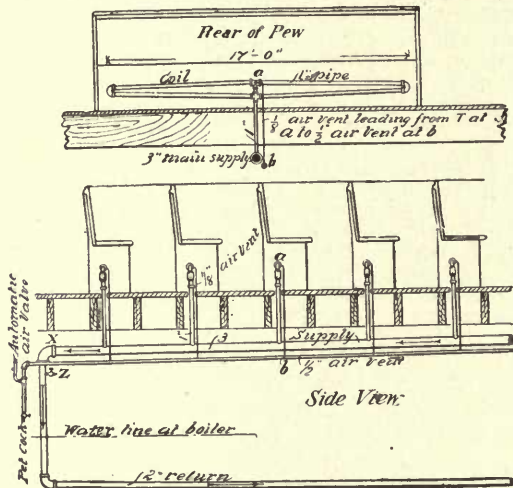 Rear of Pew
17'-0"
Coil
a
1¼" pipe
⅛" air vent leading from T at
a to ½" air vent at b
3" main supply
b
⅛" air vent
a
Automatic
air valve
X
3" Supply
& Z
b
½" air vent
Side View.
Pet Cock
Water line at boiler
2" return